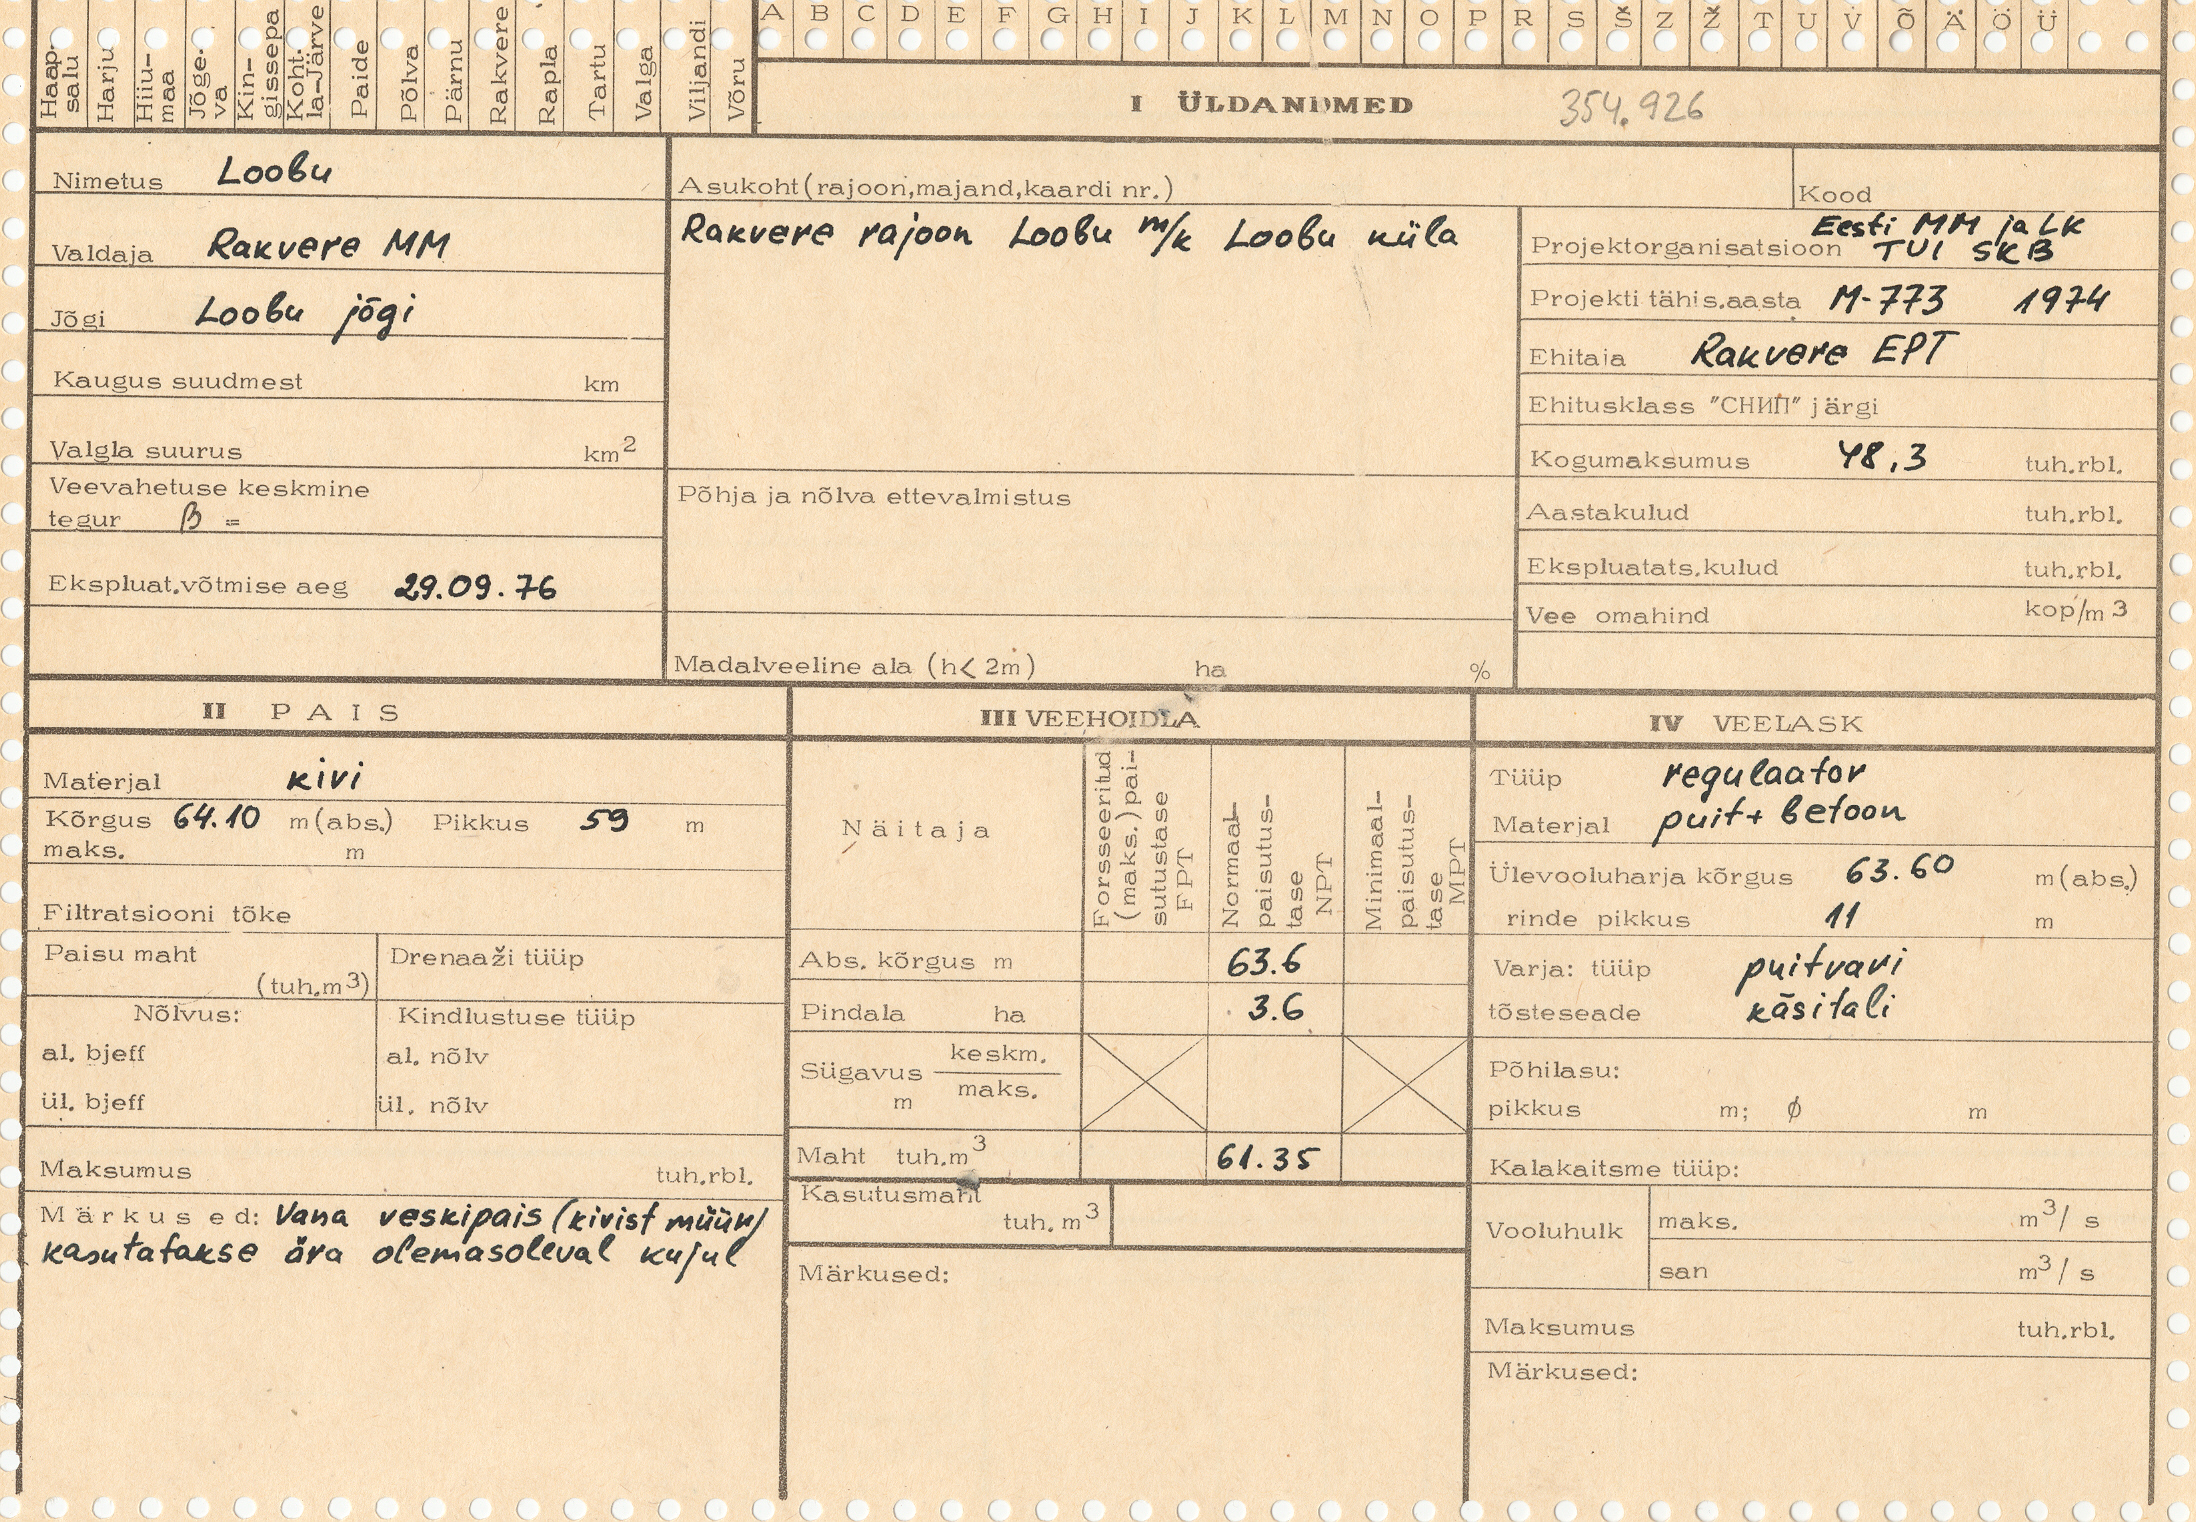 A B C D E F G H I J K L M N O P R S Š Z Ž T U V Õ Ä Ö Ü
Haap-
salu
Harju
Hiiu-
maa
Jõge-
va
Kin-
gissepa
Koht-
la-Järve
Paide
Põlva
Pärnu
Rakvere
Rapla
Tartu
Valga
Viljandi
Võru
I ÜLDANDMED 354.926
Nimetus Loobu
Valdaja Rakvere MM
Jõgi Loobu jõgi
Kaugus suudmest km
Valgla suurus km2
Veevahetuse keskmine
tegur β =
Ekspluat.võtmise aeg 29.09.76
Asukoht (rajoon,majand,kaardi nr.)
Rakvere rajoon Loobu m/k Loobu küla
Põhja ja nõlva ettevalmistus
Madalveeline ala (h< 2m) ha %
Kood
Eesti MM ja LK
Projektorganisatsioon TUI SKB
Projekti tähis.aasta M-773 1974
Ehitaja Rakvere EPT
Ehitusklass "СНИП" järgi
Kogumaksumus 48,3 tuh.rbl.
Aastakulud tuh.rbl.
Ekspluatats.kulud tuh.rbl.
Vee omahind kop/m3
II PAIS
Materjal kivi
Kõrgus 64.10 m(abs.) Pikkus 59 m
maks. m
Filtratsiooni tõke
Paisu maht
(tuh.m3)
Drenaaži tüüp
Nõlvus:
al. bjeff
ül. bjeff
Kindlustuse tüüp
al. nõlv
ül. nõlv
Maksumus tuh.rbl.
Märkused: Vana veskipais (kivist müür)
kasutatakse ära olemasoleval kujul
III VEEHOIDLA
Näitaja
Forsseeritud
(maks.) pai-
sutustase
FPT
Normaal-
paisutus-
tase
NPT
Minimaal-
paisutus-
tase
MPT
Abs. kõrgus m 63.6
Pindala ha 3.6
Sügavus keskm.
maks.
m
Maht tuh.m3 61.35
Kasutusmaht
tuh. m3
Märkused:
IV VEELASK
Tüüp regulaator
Materjal puit+ betoon
Ülevooluharja kõrgus 63.60 m(abs.)
rinde pikkus 11 m
Varja: tüüp puitvari
tõsteseade käsitali
Põhilasu:
pikkus m; ∅ m
Kalakaitsme tüüp:
Vooluhulk
maks. m3/ s
san m3/ s
Maksumus tuh.rbl.
Märkused: